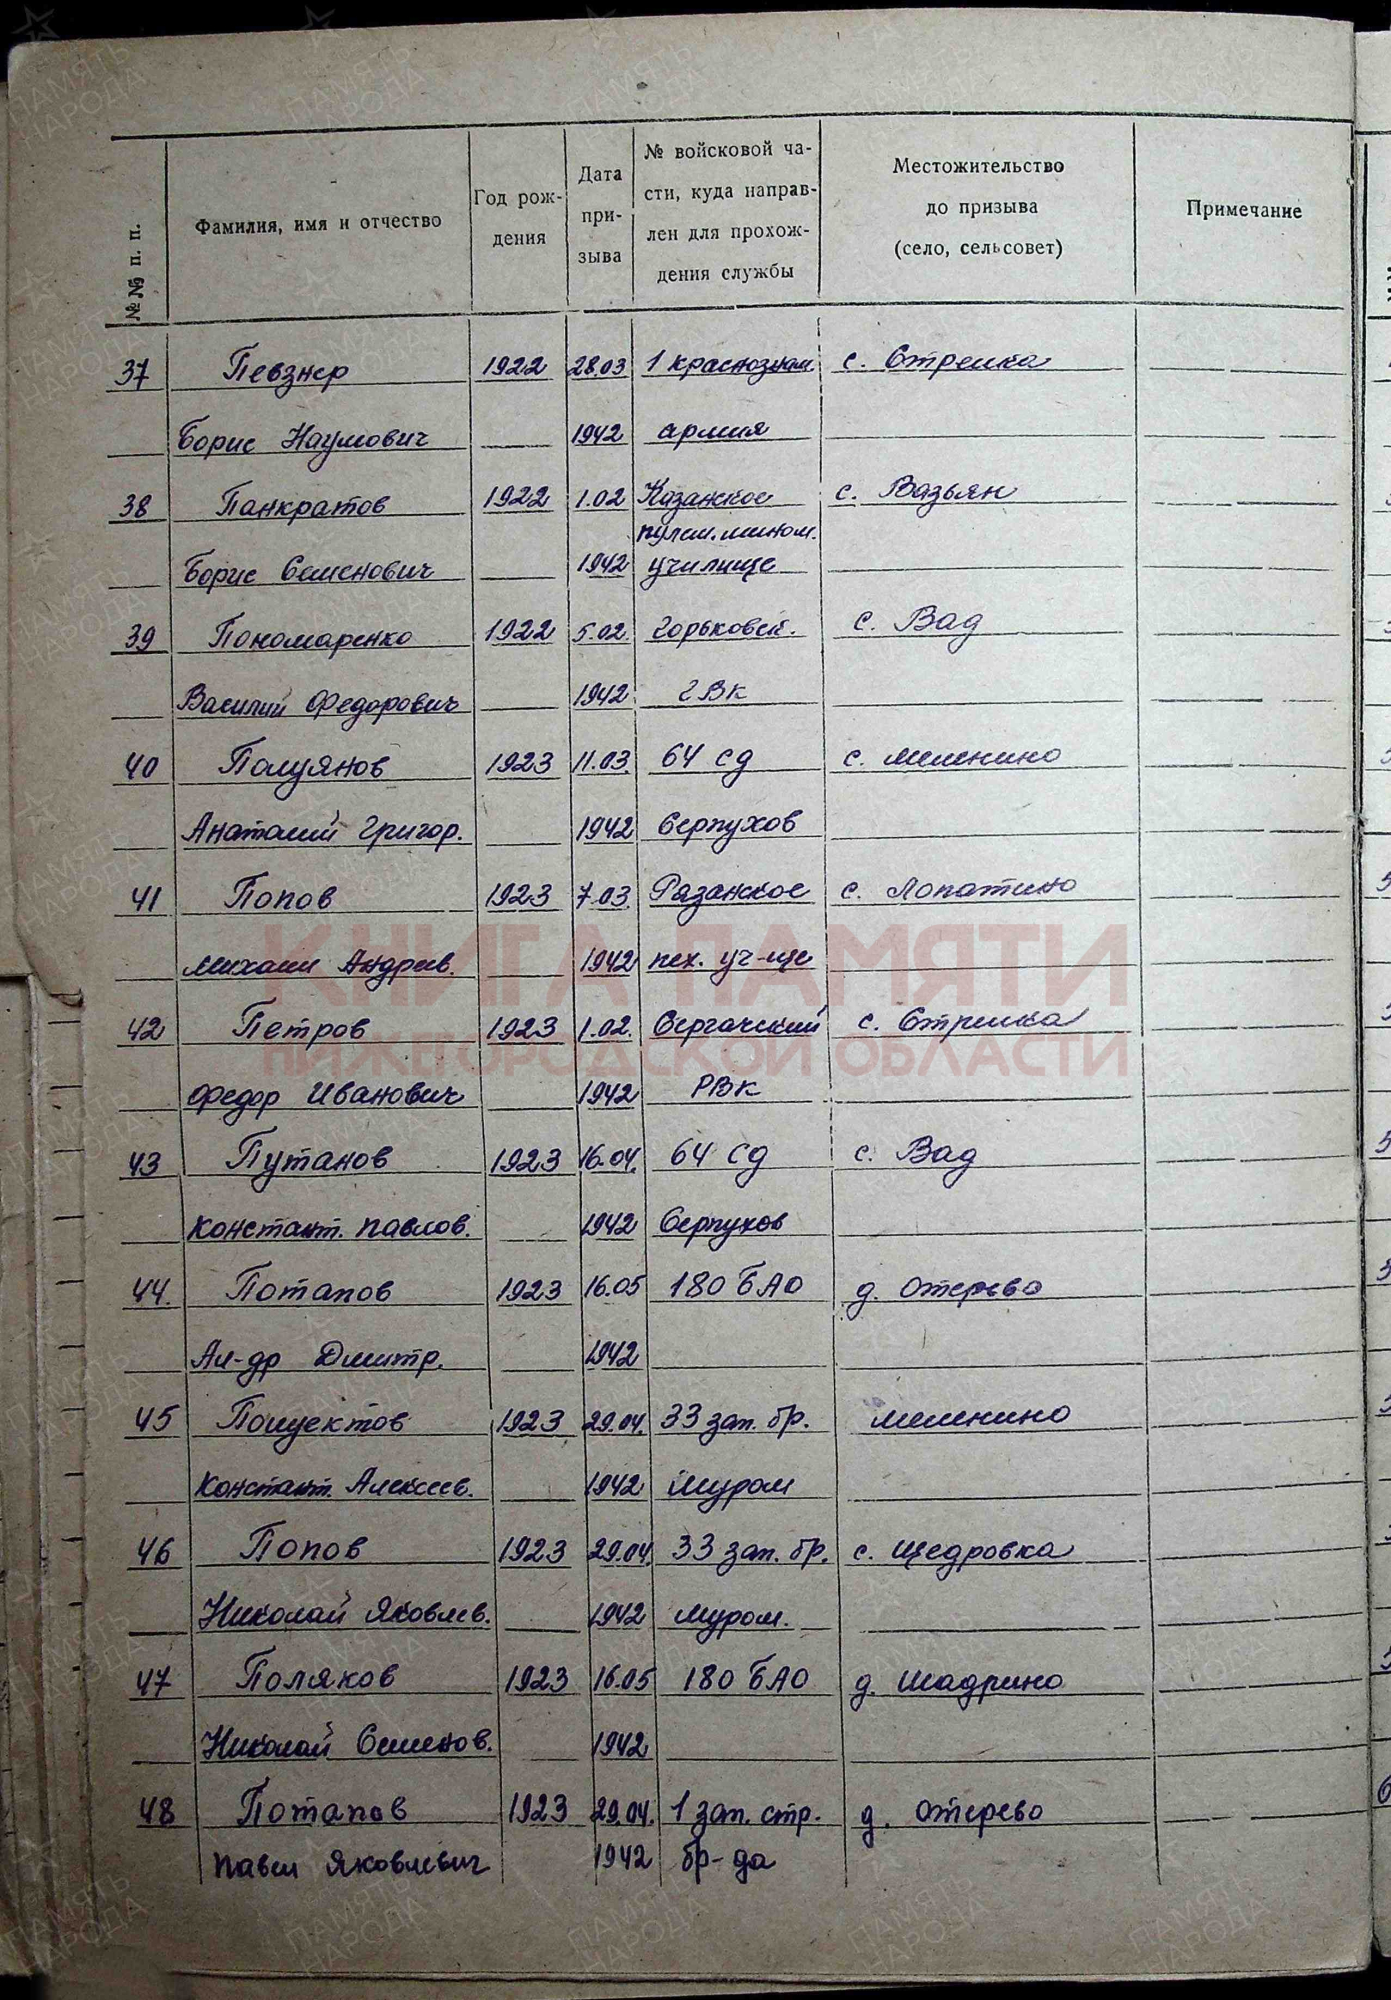 №№ п. п.
Фамилия, имя и отчество
Год рож-
дения
Дата
при-
зыва
№ войсковой ча-
сти, куда направ-
лен для прохож-
дения службы
Местожительство
до призыва
(село, сельсовет)
Примечание
37 Певзнер 1922 28.03 1 краснознам. с. Стрелка
Борис Наумович 1942 армия
38 Панкратов 1922 1.02 Казанское с. Вазьян
пулем. мином.
Борис Семенович 1942 училище
39 Пономаренко 1922 5.02. Горьковск. с. Вад
Василий Федорович 1942 ГВК
40 Полуянов 1923 11.03. 64 сд с. Меленино
Анатолий Григор. 1942 Серпухов
41 Попов 1923 7.03. Рязанское с. Лопатино
Михаил Андреев. 1942 пех. уч-ще
КНИГА ПАМЯТИ
42 Петров 1923 1.02. Сергачский с. Стрелка
НИЖЕГОРОДСКОЙ ОБЛАСТИ
Федор Иванович 1942 РВК
43 Путанов 1923 16.04. 64 сд с. Вад
Констант. Павлов. 1942 Серпухов
44. Потапов 1923 16.05 180 БАО д. Отерево
Ал-др Дмитр. 1942
45 Полуектов 1923 29.04. 33 зап. бр. Меленино
Констант. Алексеев. 1942 Муром
46 Попов 1923 29.04. 33 зап. бр. с. Щедровка
Николай Яковлев. 1942 Муром.
47 Поляков 1923 16.05 180 БАО д. Шадрино
Николай Семенов. 1942
48 Потапов 1923 29.04. 1 зап. стр. д. Отерево
Павел Яковлевич 1942 бр-да
ПАМЯТЬ
НАРОДА